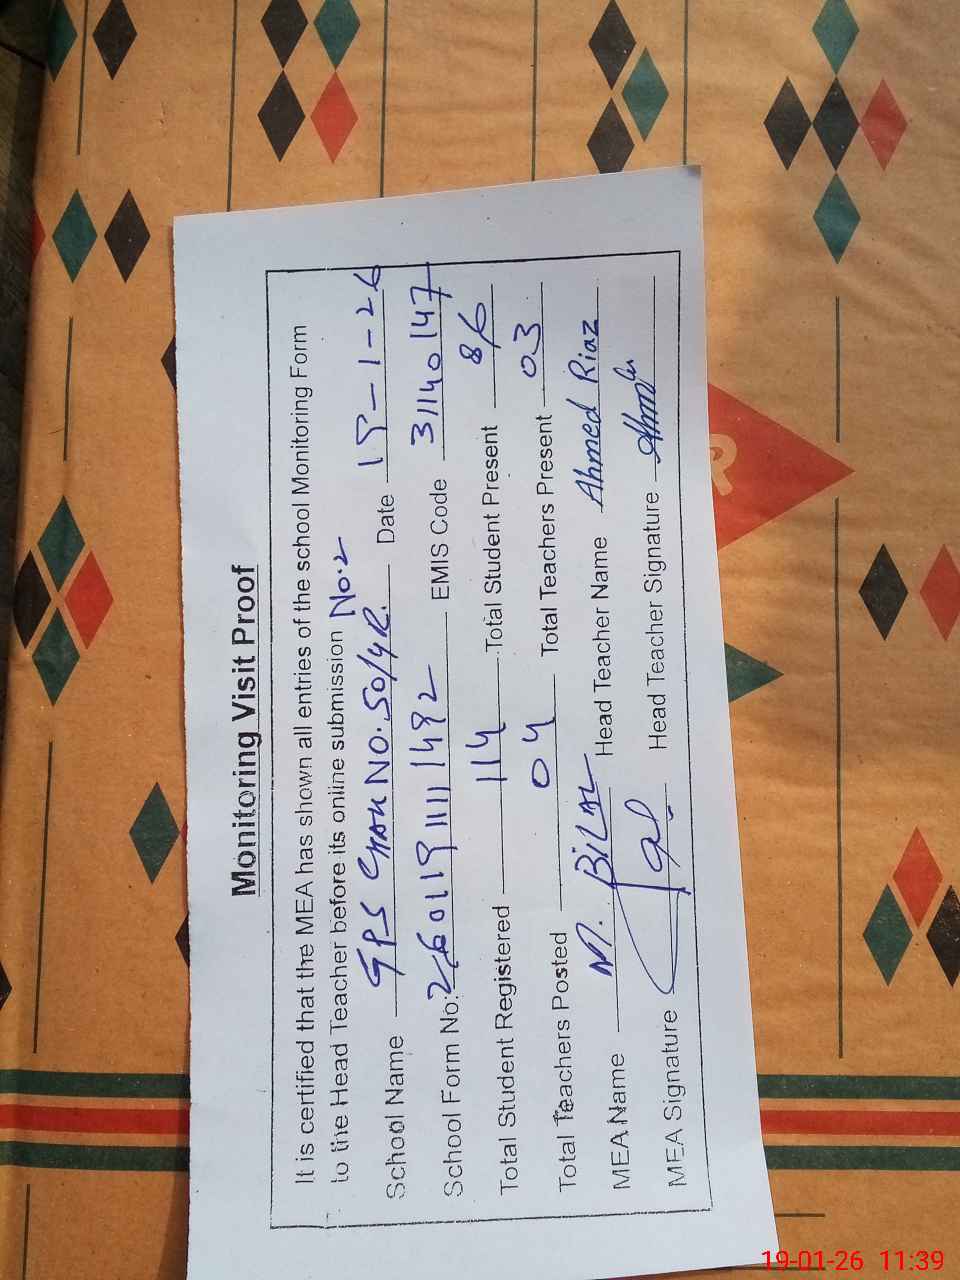 Monitoring Visit Proof
It is certified that the MEA has shown all entries of the school Monitoring Form
to the Head Teacher before its online submission No.2
School Name GPS CHAK NO. 50/4R. Date 19-1-26
School Form No: 26011911111492 EMIS Code 31140147
Total Student Registered 114 Total Student Present 86
Total Teachers Posted 04 Total Teachers Present 03
MEA Name M. BILAL Head Teacher Name Ahmed Riaz
MEA Signature Head Teacher Signature
19-01-26 11:39